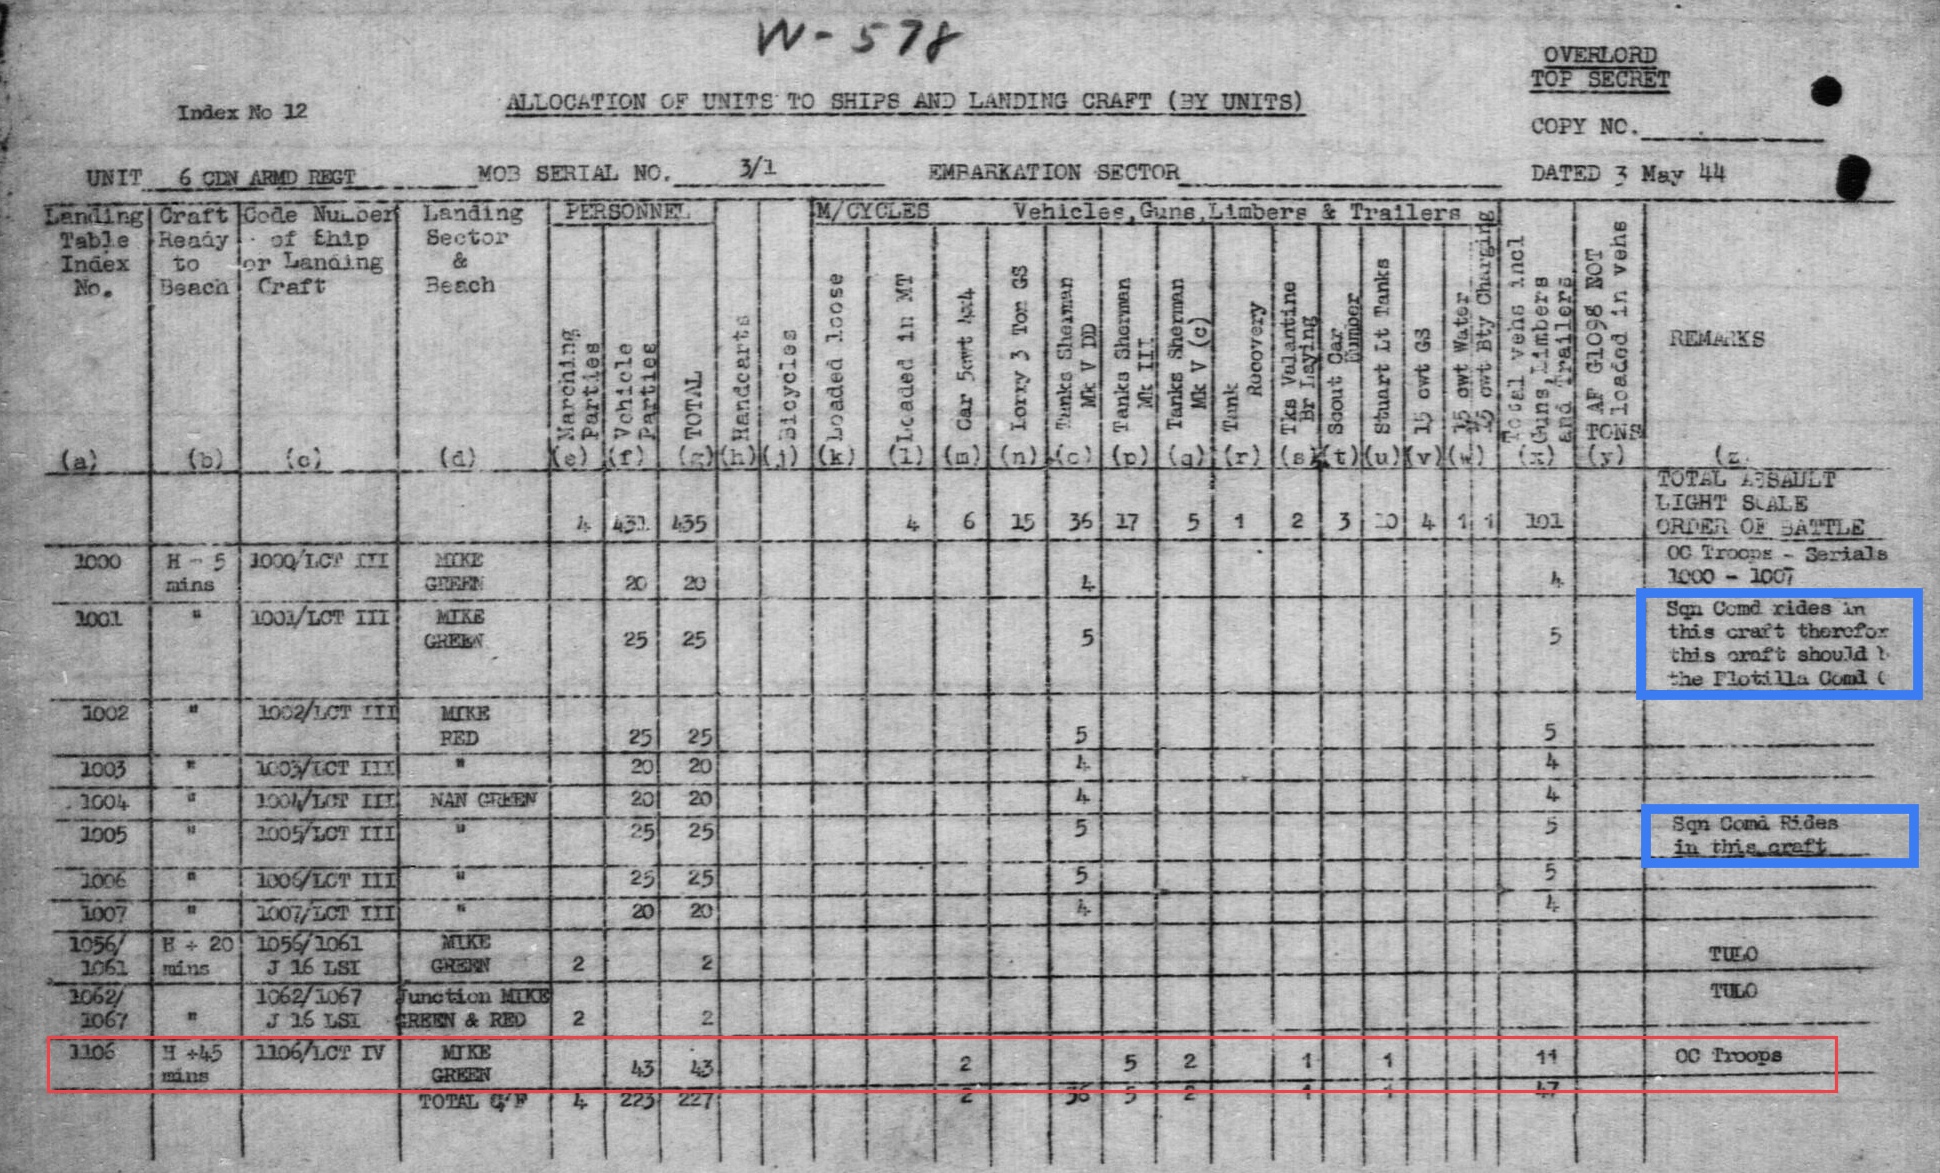 W-578
OVERLORD
TOP SECRET
Index No 12
ALLOCATION OF UNITS TO SHIPS AND LANDING CRAFT (BY UNITS)
COPY NO.
UNIT 6 CDN ARMD REGT MOB SERIAL NO. 3/1 EMBARKATION SECTOR DATED 3 May 44
Landing Table Index No. (a)
Craft Ready to Beach (b)
Code Number of Ship or Landing Craft (c)
Landing Sector & Beach (d)
PERSONNEL
Marching Parties (e)
Vehicle Parties (f)
TOTAL (g)
Handcarts (h)
Bicycles (j)
M/CYCLES
Loaded loose (k)
Loaded in MT (l)
Vehicles, Guns, Limbers & Trailers
Car 5cwt 4x4 (m)
Lorry 3 Ton GS (n)
Tanks Sherman Mk V DD (o)
Tanks Sherman Mk III (p)
Tanks Sherman Mk V (c) (q)
Tank Recovery (r)
Tks Valantine Br Laying (s)
Scout Car Humber (t)
Stuart Lt Tanks (u)
15 cwt GS (v)
15 cwt Water (w)
15 cwt Bty Charging
Total vehs incl Guns, Limbers and Trailers (x)
AF G1098 NOT loaded in vehs TONS (y)
REMARKS (z)
4 431 435 4 6 15 36 17 5 1 2 3 10 4 1 1 101 TOTAL ASSAULT
LIGHT SCALE
ORDER OF BATTLE
1000 H - 5 mins 1000/LCT III MIKE GREEN 20 20 4 4 OC Troops - Serials
1000 - 1007
1001 " 1001/LCT III MIKE GREEN 25 25 5 5 Sqn Comd rides in
this craft therefor
this craft should b
the Flotilla Comd C
1002 " 1002/LCT III MIKE RED 25 25 5 5
1003 " 1003/LCT III " 20 20 4 4
1004 " 1004/LCT III NAN GREEN 20 20 4 4
1005 " 1005/LCT III " 25 25 5 5 Sqn Comd Rides
in this craft
1006 " 1006/LCT III " 25 25 5 5
1007 " 1007/LCT III " 20 20 4 4
1056/1061 H + 20 mins 1056/1061 J 16 LSI MIKE GREEN 2 2 TULO
1062/1067 " 1062/1067 J 16 LSI Junction MIKE GREEN & RED 2 2 TULO
1106 H +45 mins 1106/LCT IV MIKE GREEN 43 43 2 5 2 1 1 11 OC Troops
TOTAL C/F 4 223 227 2 36 5 2 1 1 47